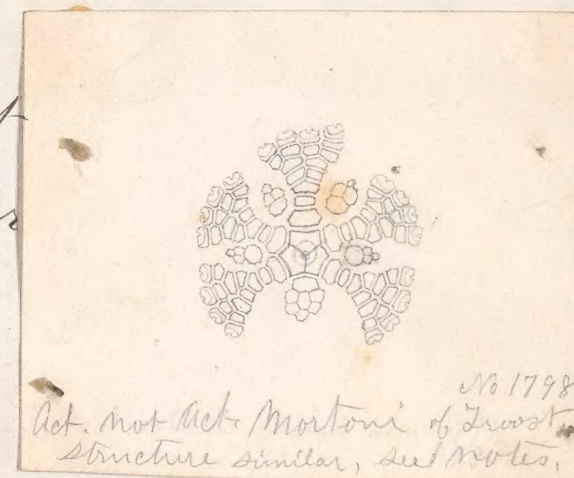 No 1798
Act. not Act. Mortoni of Troost
structure similar, see notes.